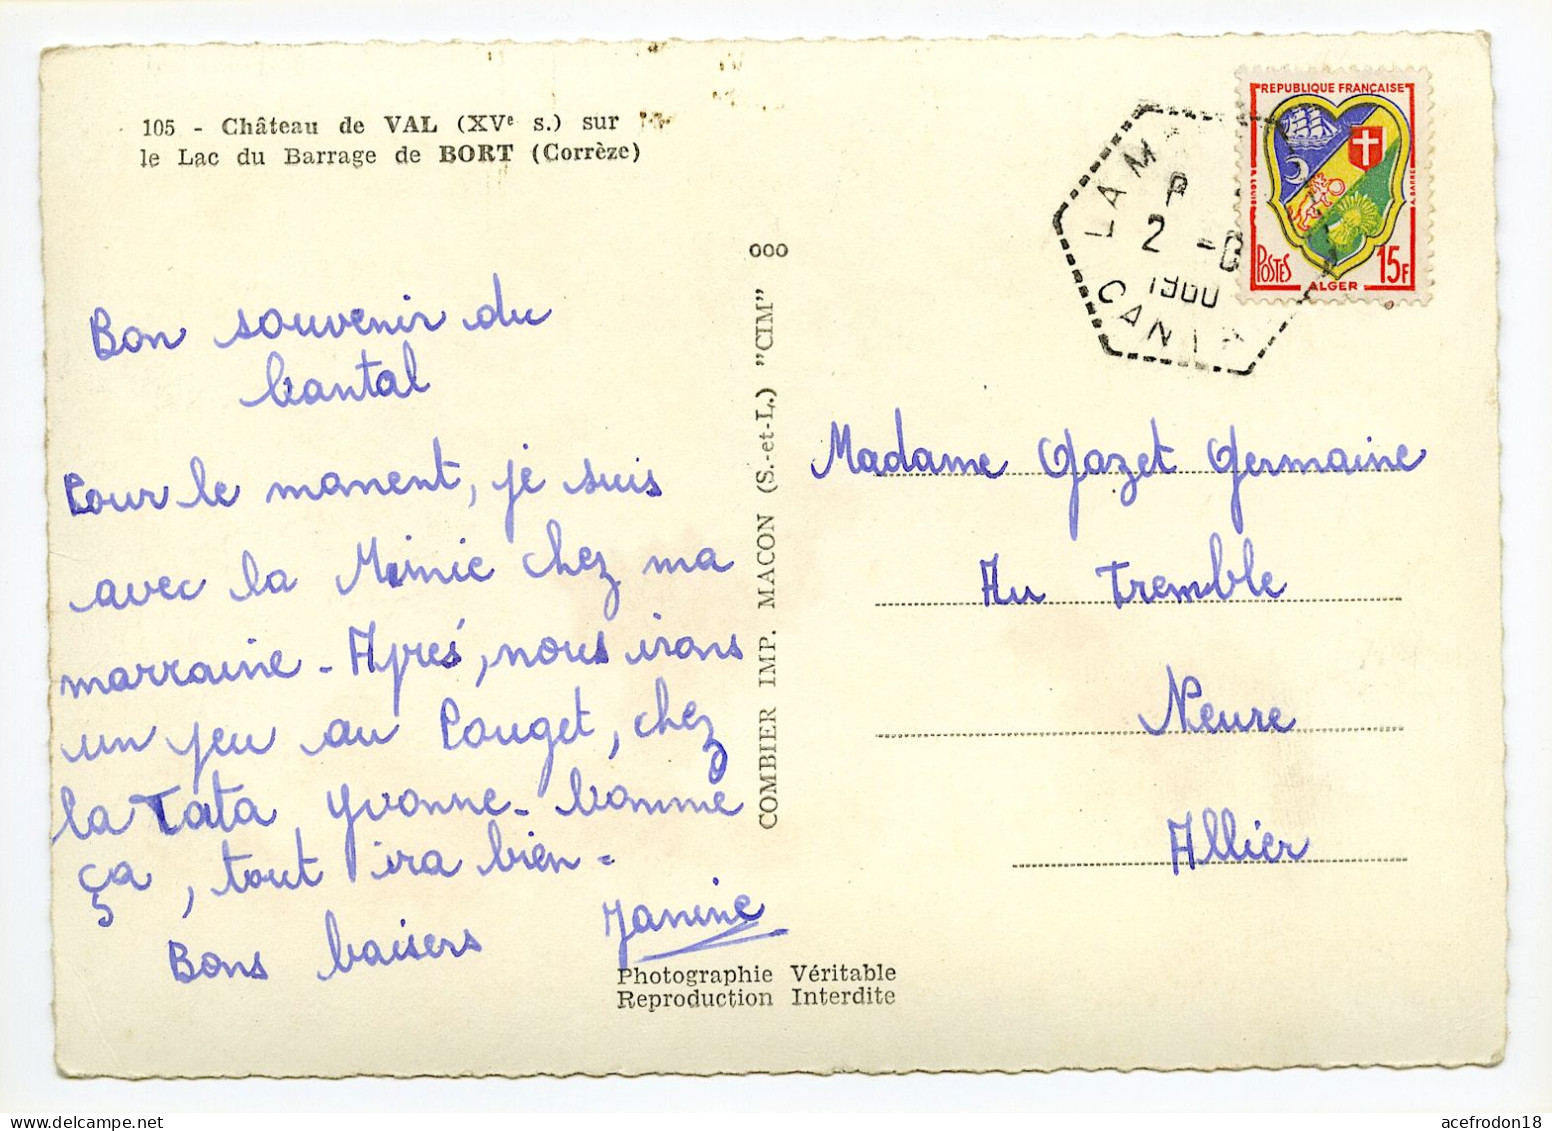 105 - Château de VAL (XVe s.) sur
le Lac du Barrage de BORT (Corrèze)
Bon souvenir du
Cantal
Pour le moment, je suis
avec la Mimie chez ma
marraine - Après, nous irons
un peu au Pouget, chez
la Tata Yvonne - Comme
ça, tout ira bien -
Bons baisers Janine
ooo
COMBIER IMP. MACON (S.-et-L.) "CIM"
Photographie Véritable
Reproduction Interdite
REPUBLIQUE FRANÇAISE
POSTES
15F
ALGER
P
2 -
1960
Madame Gazet Germaine
Au Tremble
Neure
Allier
acefrodon18